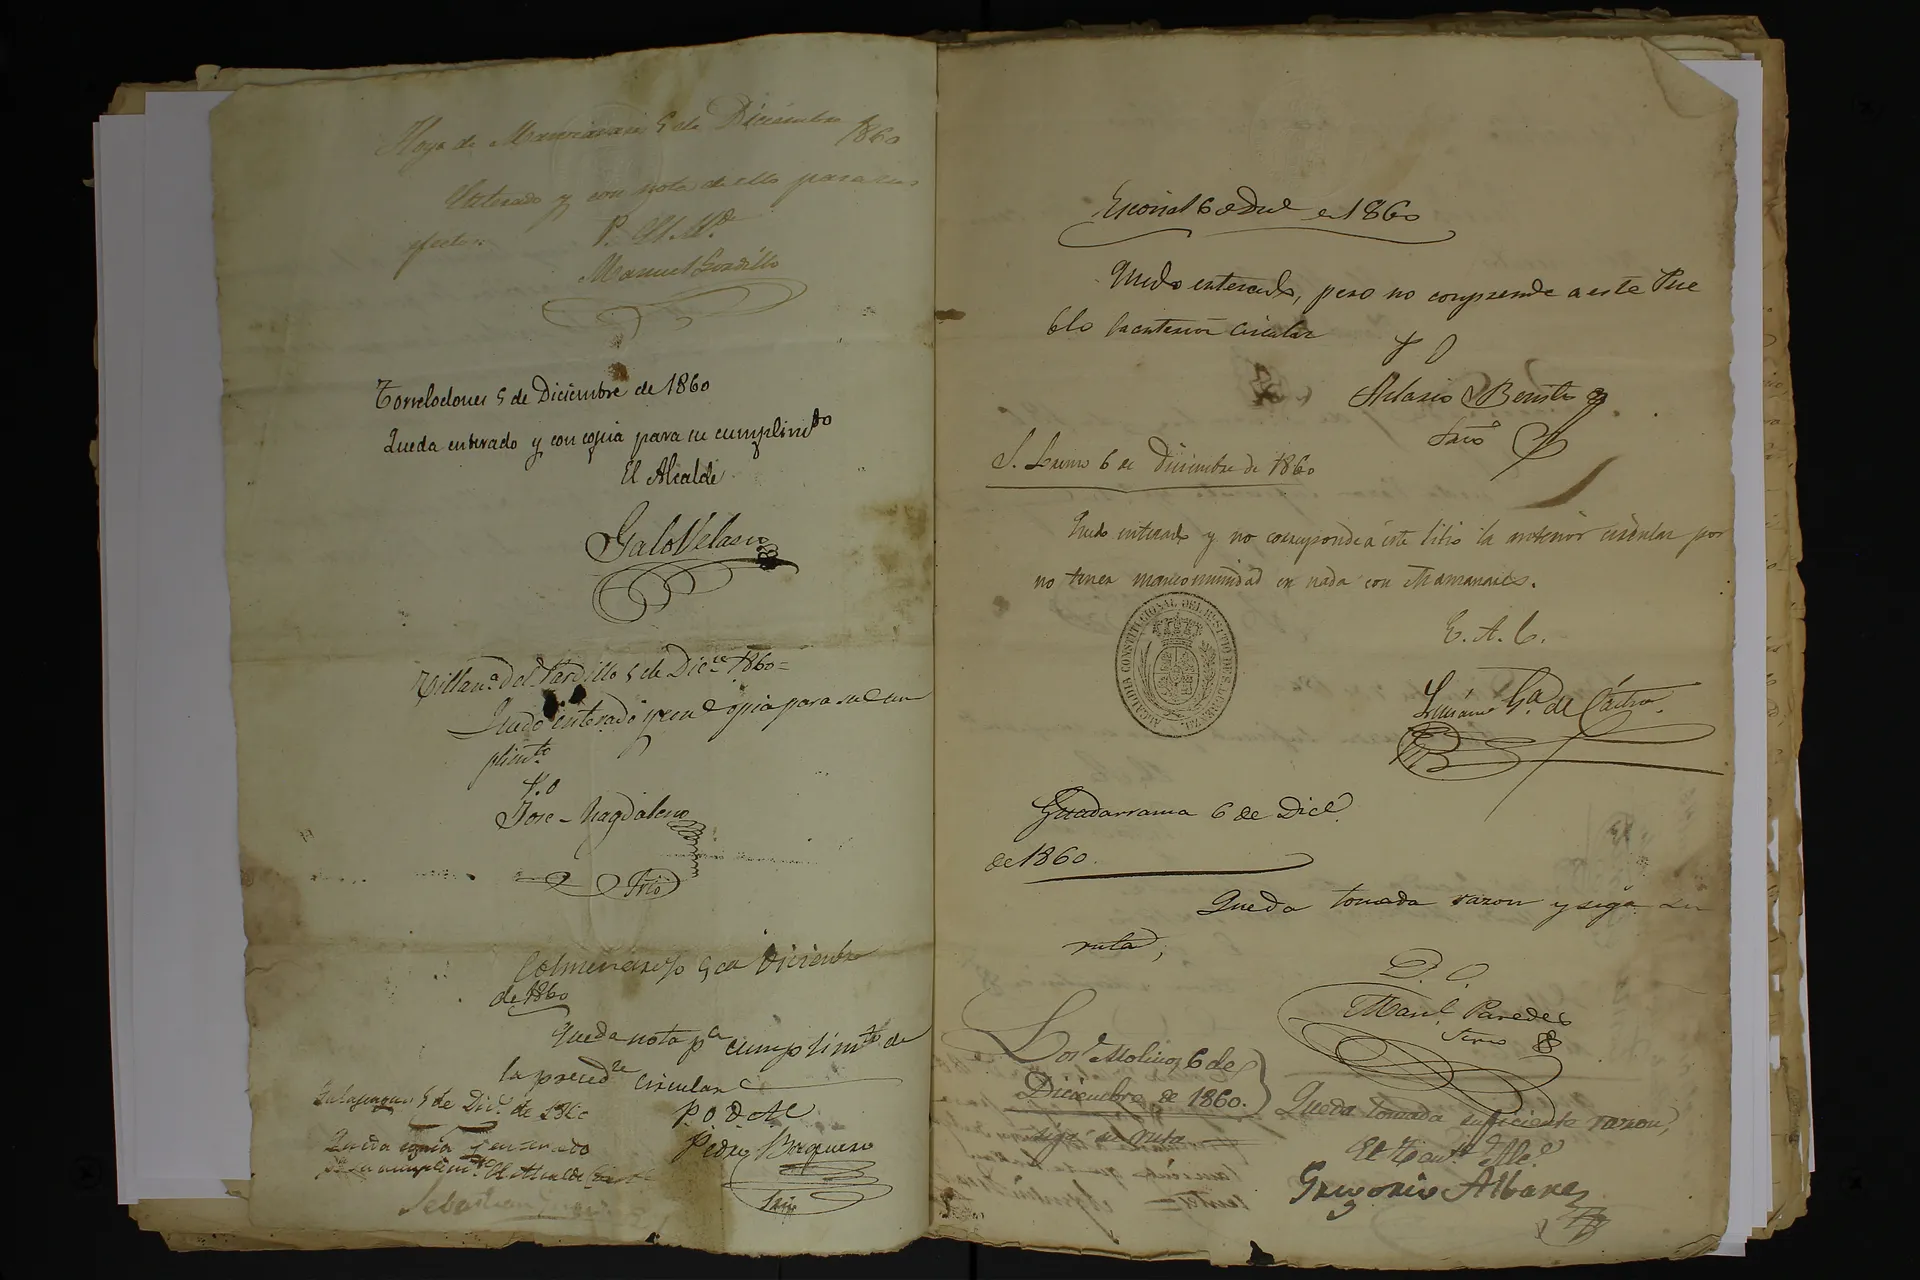 Hoyo de Manzanares 5 de Diciembre 1860
Enterado y con nota de ello para sus
efectos.
P. A. M.
Manuel Gordillo
Torrelodones 5 de Diciembre de 1860
Queda enterado y con copia para su cumplimto
El Alcalde
Galo Velasco
Villana. del Pardillo 5 de Dice. 1860=
Quedo enterado y con copia para su cum
plimto
P. O
Jose Magdaleno
Srio
Colmenarejo 5 de Diciembre
de 1860
Queda nota pa cumplimto de
la precede circular
P. O. D. Al
Pedro Baquero
Srio
Galapagar 5 de Dice. de 1860
Queda copia y enterado
pa su cumplimto. El Alcalde
Sebastian
Escorial 6 de Dice de 1860
Quedo enterado, pero no comprende a este Pue
blo la anterior circular
P O
Benito
Srio
S. Lorenzo 6 de Diciembre de 1860
Quedo enterado y no corresponde á este Sitio la anterior circular por
no tener mancomunidad en nada con Manzanares.
E. A. C.
ALCALDIA CONSTITUCIONAL DEL R. SITIO DE S. LORENZO
Ga. de Castro.
Guadarrama 6 de Dice.
de 1860.
Queda tomada razon y siga su
ruta;
D. O.
Manl. Paredes
Srio
Los Molinos 6 de
Diciembre de 1860.
Queda tomada suficiente razon,
siga su ruta
El Tente. Ale.
Gregorio Albarez